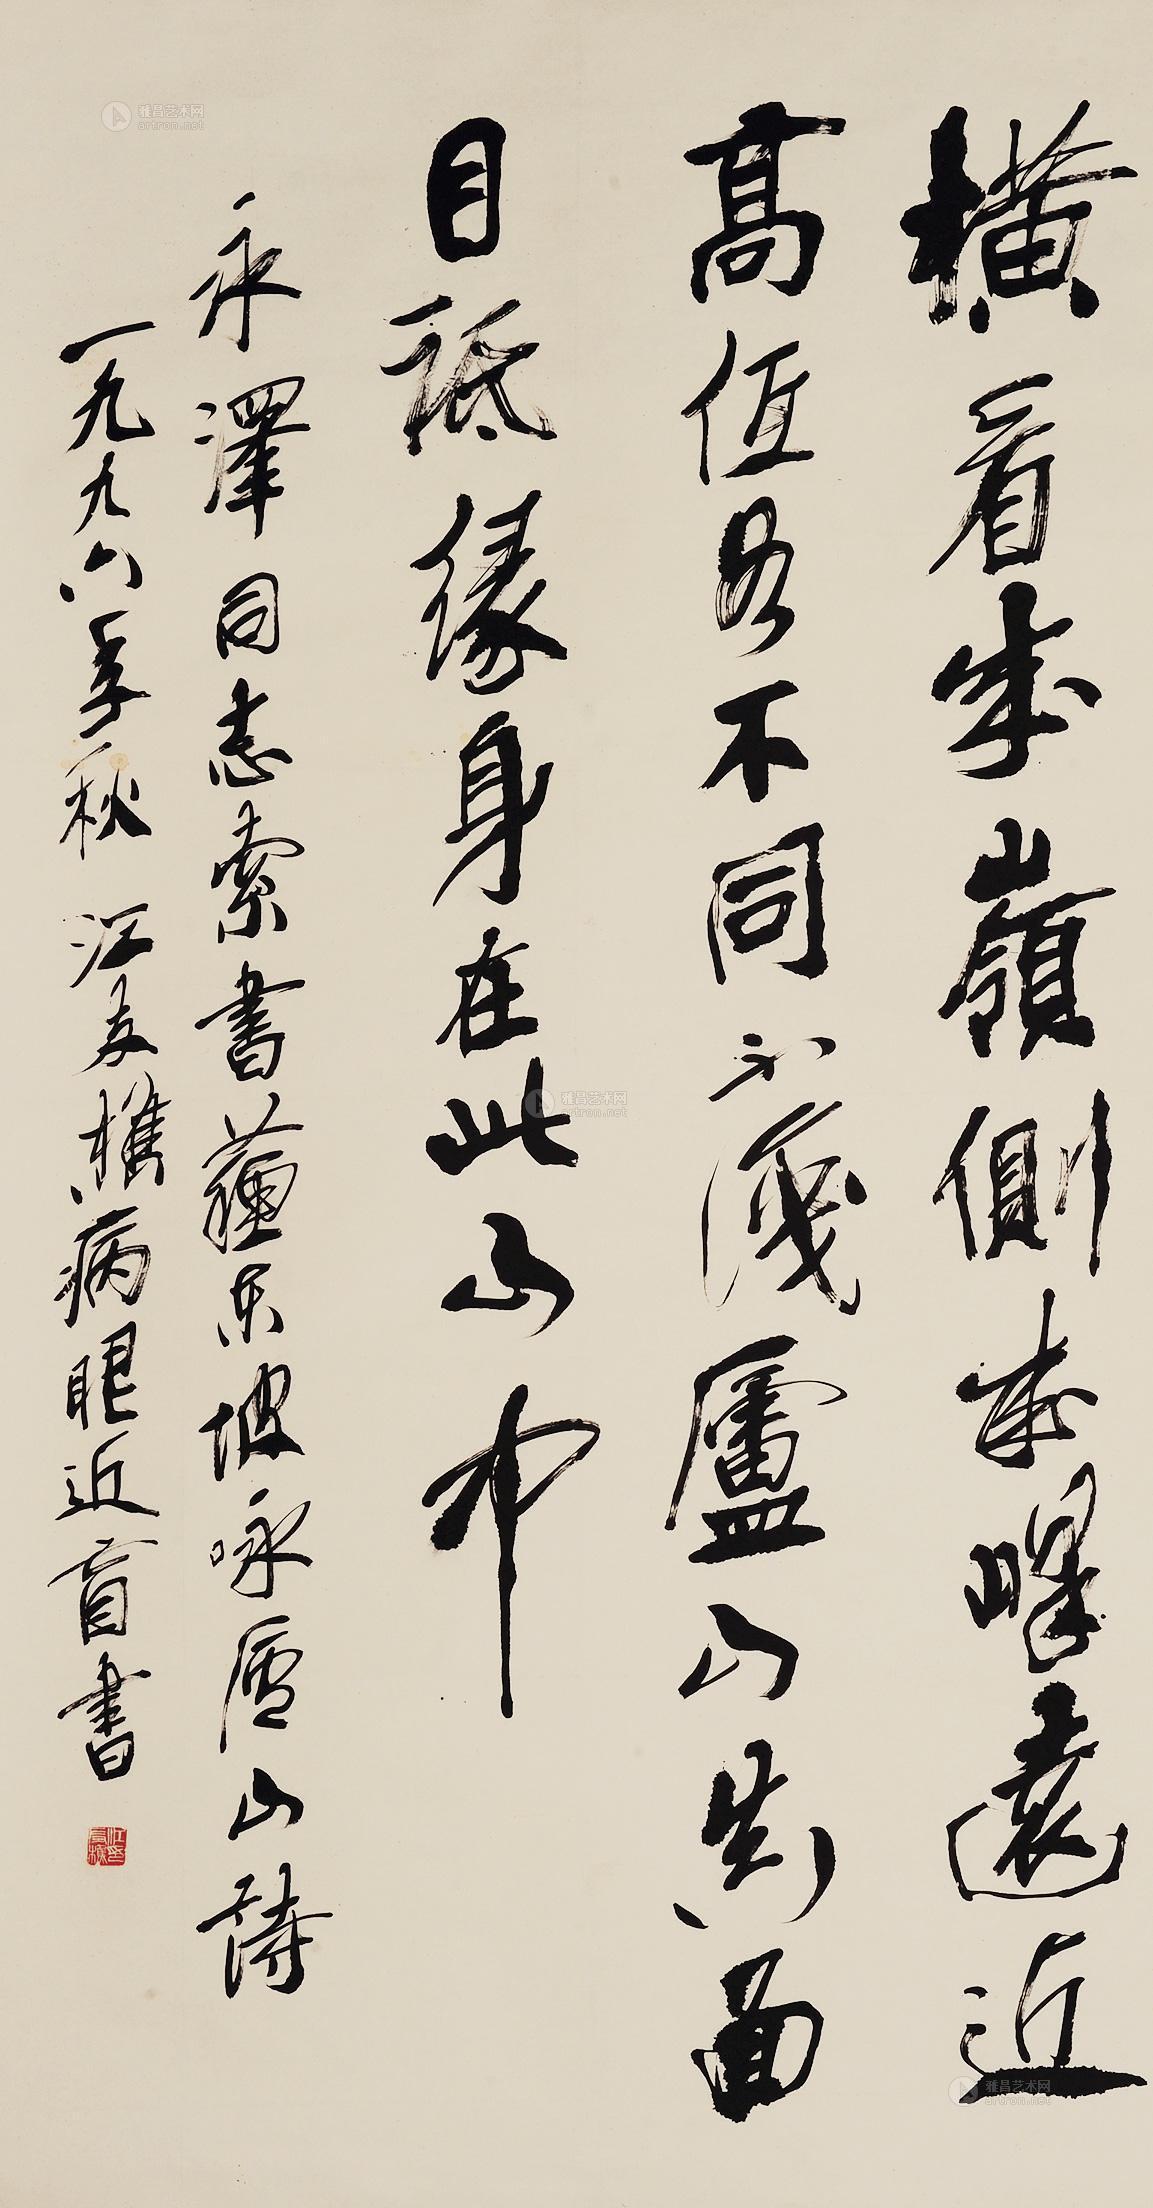 横看成嶺側成峰遠近
高低各不同不識廬山真面
目祗緣身在此山中
永澤同志索書蘇東坡咏廬山詩
一九九六年秋江友樵病眼近盲書
江友樵
雅昌艺术网
artron.net
雅昌艺术网
artron.net
雅昌艺术网
artron.net